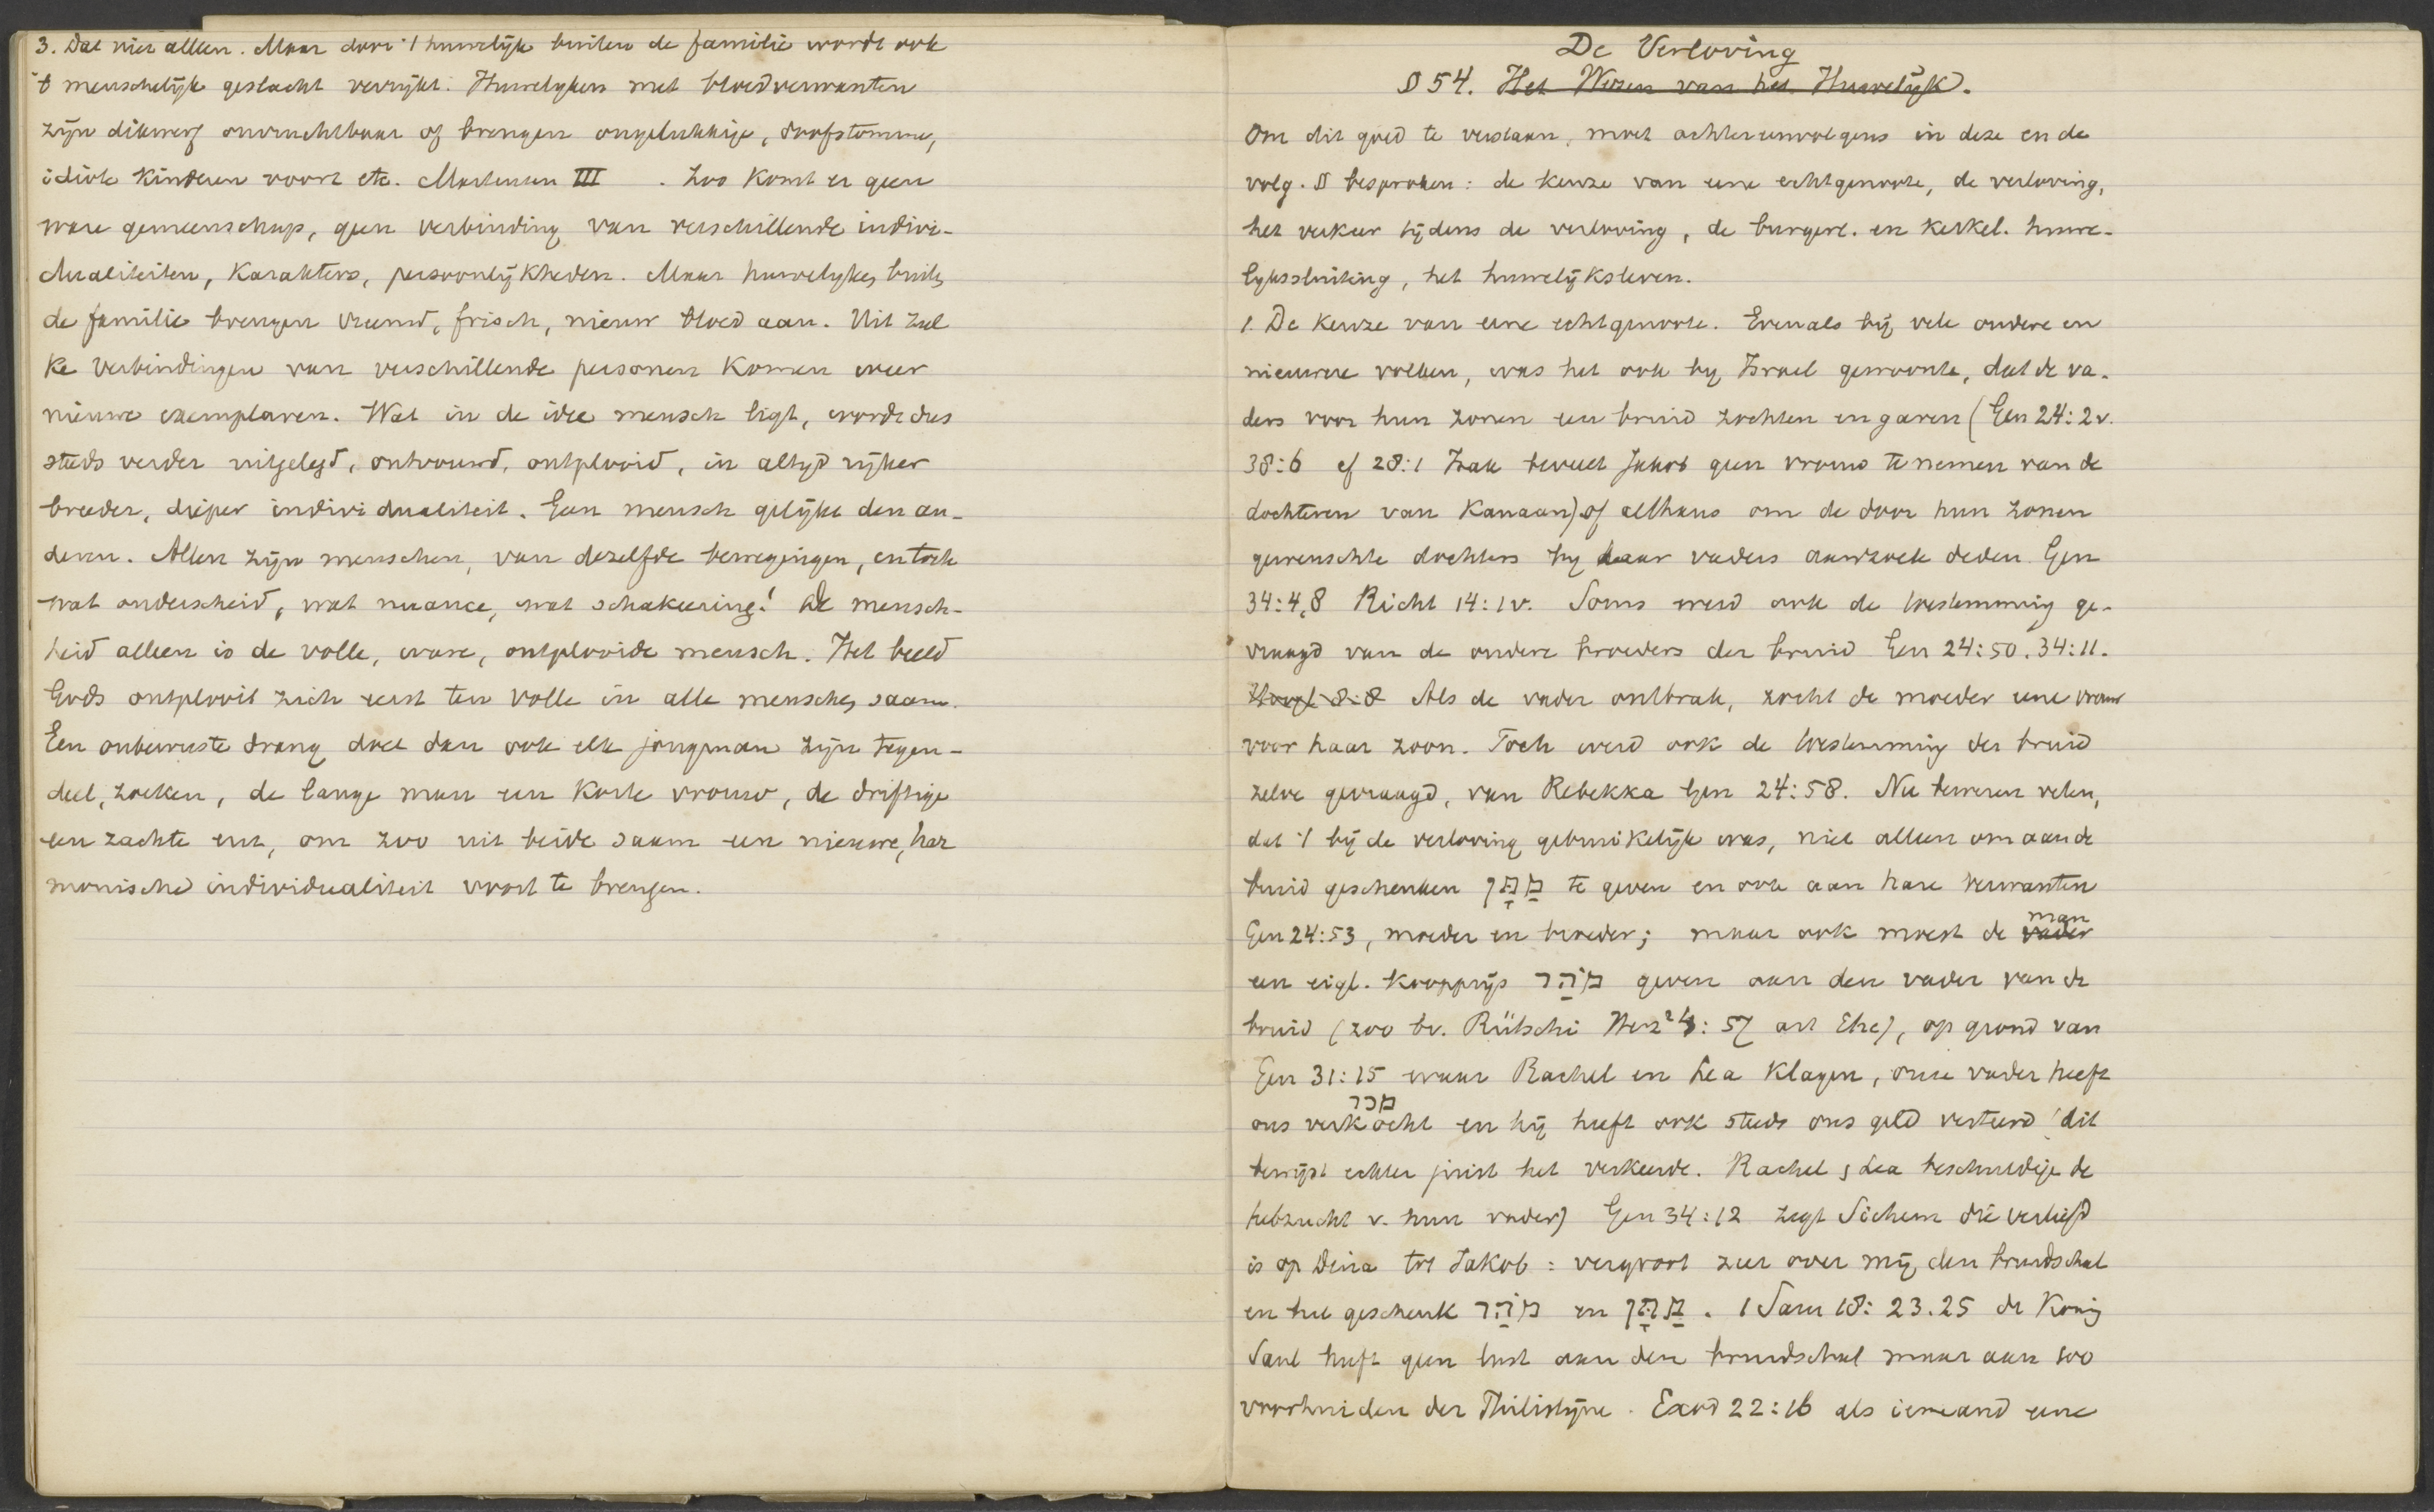 3. Dat niet alleen. Maar door 't huwelijk buiten de familie wordt ook
't menschelijk geslacht verrijkt. Huwelyken met bloedverwanten
zijn dikwerf onvruchtbaar of brengen ongelukkige, doofstomme,
idiote kinderen voort etc. Martensen III . Zoo komt er geen
ware gemeenschap, geen verbinding van verschillende indivi-
dualiteiten, karakters, persoonlijkheden. Maar huwelyken buiten
de familie brengen vreemd, frisch, nieuw bloed aan. Uit zul
ke verbindingen van verschillende personen komen weer
nieuwe exemplaren. Wat in de idee mensch ligt, wordt dus
steeds verder uitgelegd, ontvouwd, ontplooid, in altyd ryker
breeder, dieper individualiteit. Geen mensch gelijkt den an-
deren. Allen zijn menschen, van dezelfde bewegingen, en toch
wat onderscheid, wat nuance, wat schakeering! De mensch-
heid alleen is de volle, ware, ontplooide mensch. Het beeld
Gods ontplooit zich eerst ten volle in alle menschen saam.
Een onbewuste drang doet dan ook elk jongman zijn tegen-
deel, zoeken, de lange man een korte vrouw, de driftige
een zachte enz, om zoo uit beide saam een nieuwe, har
monische individualiteit voort te brengen.
De Verloving
§ 54. Het Wezen van het Huwelijk.
Om dit goed te verstaan, moet achtereenvolgens in deze en de
volg. §§ besproken: de keuze van eene echtgenoote, de verloving,
het verkeer tijdens de verloving, de burgerl. en kerkel. huwe-
lyksslniting, het huwelijksleven.
1. De keuze van eene echtgenoote. Evenals bij vele oudere en
nieuwere volken, was het ook by Israel gewoonte, dat de va-
ders voor hun zonen een bruid zochten en gaven (Gen 24:2v.
38:6 cf 28:1 Izak beveelt Jakob geen vrouw te nemen van de
dochteren van Kanaan) of althans om de door hun zonen
gewenschte dochters by haar vaders aanzoek deden Gen
34:4,8 Richt 14:1v. Soms werd ook de toestemming ge-
vraagd van de oudere broeders der bruid Gen 24:50. 34:11.
Hoogl 8:8 Als de vader ontbrak, zocht de moeder eene vrouw
voor haar zoon. Toch werd ook de toestemming der bruid
zelve gevraagd, van Rebekka Gen 24:58. Nu beweren velen,
dat 't bij de verloving gebruikelijk was, niet alleen om aan de
bruid geschenken מַתָּן te geven en ook aan hare verwanten
Gen 24:53, moeder en broeder; maar ook moest de vader man
een eigl. koopprijs מֹהַר geven aan den vader van de
bruid (zoo bv. Rütschi Herz² 4: 57 art Ehe), op grond van
Gen 31:15 waar Rachel en Lea klagen, onze vader heeft
מכר
ons verkocht en hij heeft ook steeds ons geld verteerd (dit
bewijst echter juist het verkeerde. Rachel & Lea beschuldige de
hebzucht v. hun vader) Gen 34:12 zegt Sichem die verliefd
is op Dina tot Jakob: vergroot zeer over mij den bruidschat
en het geschenk מֹהַר en מַתָּן. 1 Sam 18: 23.25 de Konig
Saul heeft geen lust aan den bruidschat maar aan 100
voorhuiden der Philistijne. Exod 22:16 als iemand eene